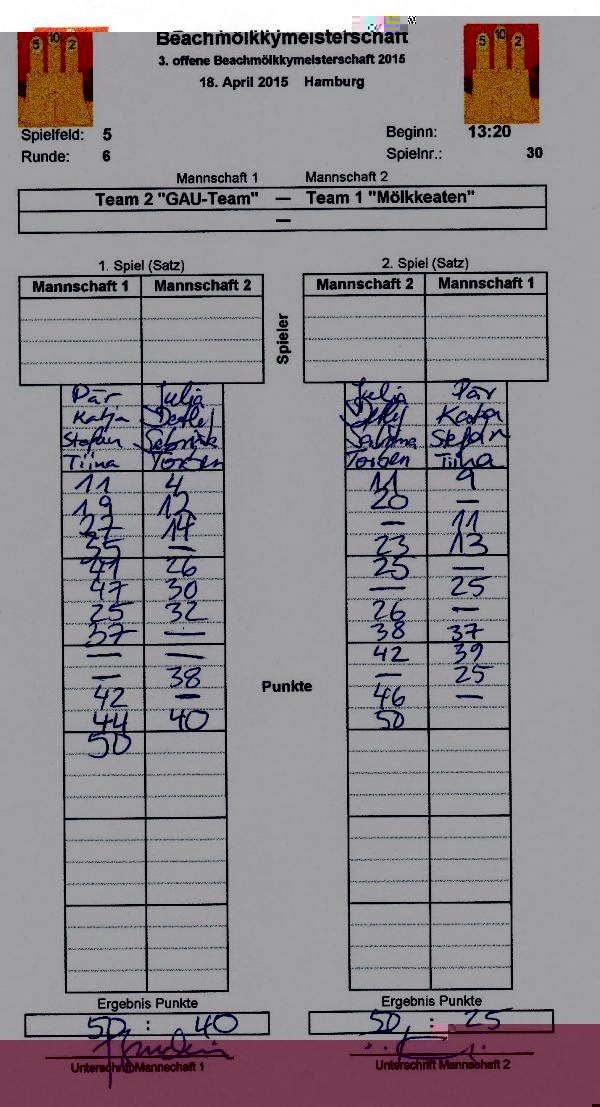 5 10 2
Beachmölkkymeisterschaft
5 10 2
3. offene Beachmölkkymeisterschaft 2015
18. April 2015 Hamburg
Spielfeld: 5
Beginn: 13:20
Runde: 6
Spielnr.: 30
Mannschaft 1 Mannschaft 2
Team 2 "GAU-Team" — Team 1 "Mölkkeaten"
—
1. Spiel (Satz) 2. Spiel (Satz)
Mannschaft 1 Mannschaft 2 Mannschaft 2 Mannschaft 1
Spieler
Pär Julia Julia Pär
Katja Detlef Detlef Katja
Stefan Stefan
Tiina Torsten Torben Tiina
11 4 11 9
19 12 20 —
27 14 — 11
35 — 23 13
41 26 25 —
47 30 — 25
25 32 26 —
37 — 38 37
— — 42 39
— 38 — 25
Punkte
42 — 46 —
44 40 50
50
Ergebnis Punkte Ergebnis Punkte
50 : 40 50 : 25
Unterschrift Mannschaft 1 Unterschrift Mannschaft 2